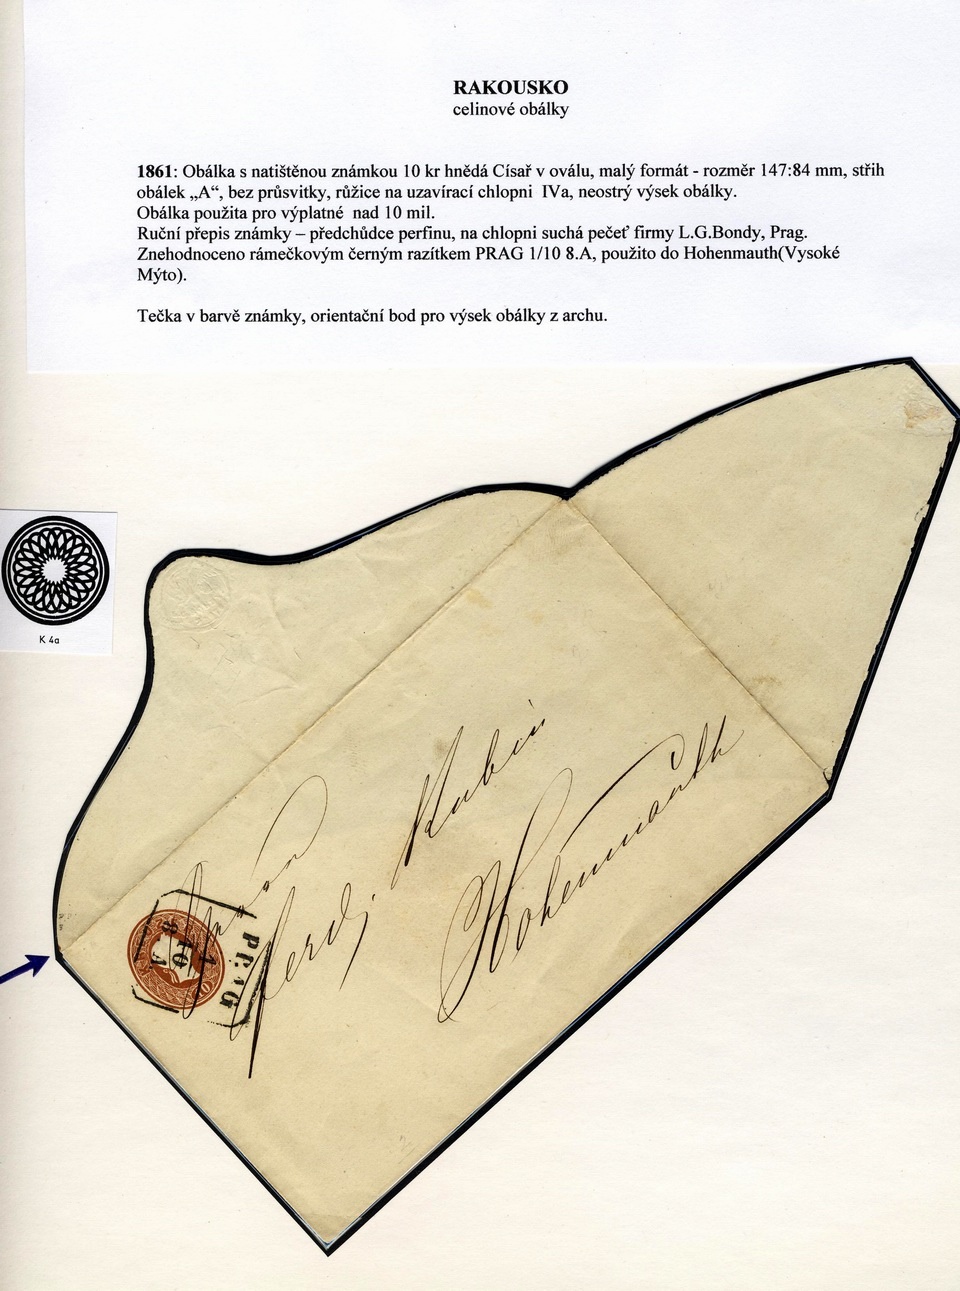 RAKOUSKO
celinové obálky
1861: Obálka s natištěnou známkou 10 kr hnědá Císař v oválu, malý formát - rozměr 147:84 mm, střih
obálek „A“, bez průsvitky, růžice na uzavírací chlopni IVa, neostrý výsek obálky.
Obálka použita pro výplatné nad 10 mil.
Ruční přepis známky – předchůdce perfinu, na chlopni suchá pečeť firmy L.G.Bondy, Prag.
Znehodnoceno rámečkovým černým razítkem PRAG 1/10 8.A, použito do Hohenmauth(Vysoké
Mýto).
Tečka v barvě známky, orientační bod pro výsek obálky z archu.
K 4a
Ferdj. Kubin
Hohenmauth
PRAG
1
10
8 A